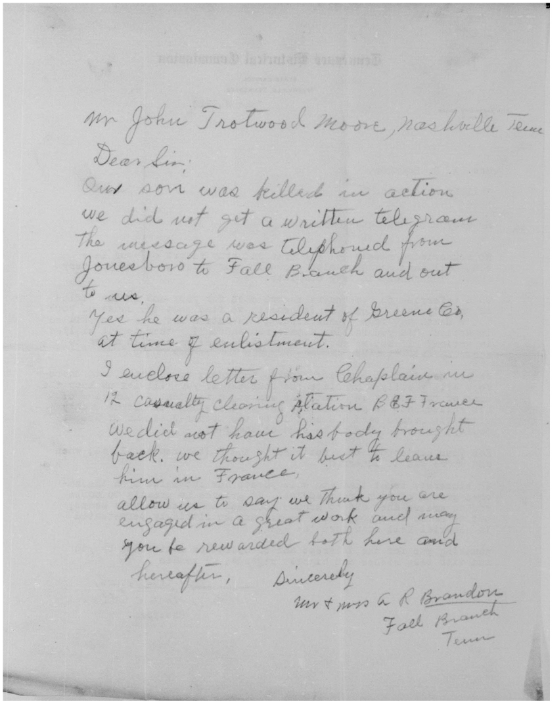 Tennessee Historical Commission
Mr John Trotwood Moore, Nashville Tenn
Dear Sir;
Our son was killed in action
we did not get a written telegram
the message was telephoned from
Jonesboro to Fall Branch and out
to us.
Yes he was a resident of Greene Co,
at time of enlistment.
I enclose letter from Chaplain in
12 casualty clearing station B E F France
We did not have his body brought
back. we thought it best to leave
him in France,
allow us to say we think you are
engaged in a great work and may
you be rewarded both here and
hereafter,
Sincerely
Mr & Mrs A R Brandon
Fall Branch
Tenn